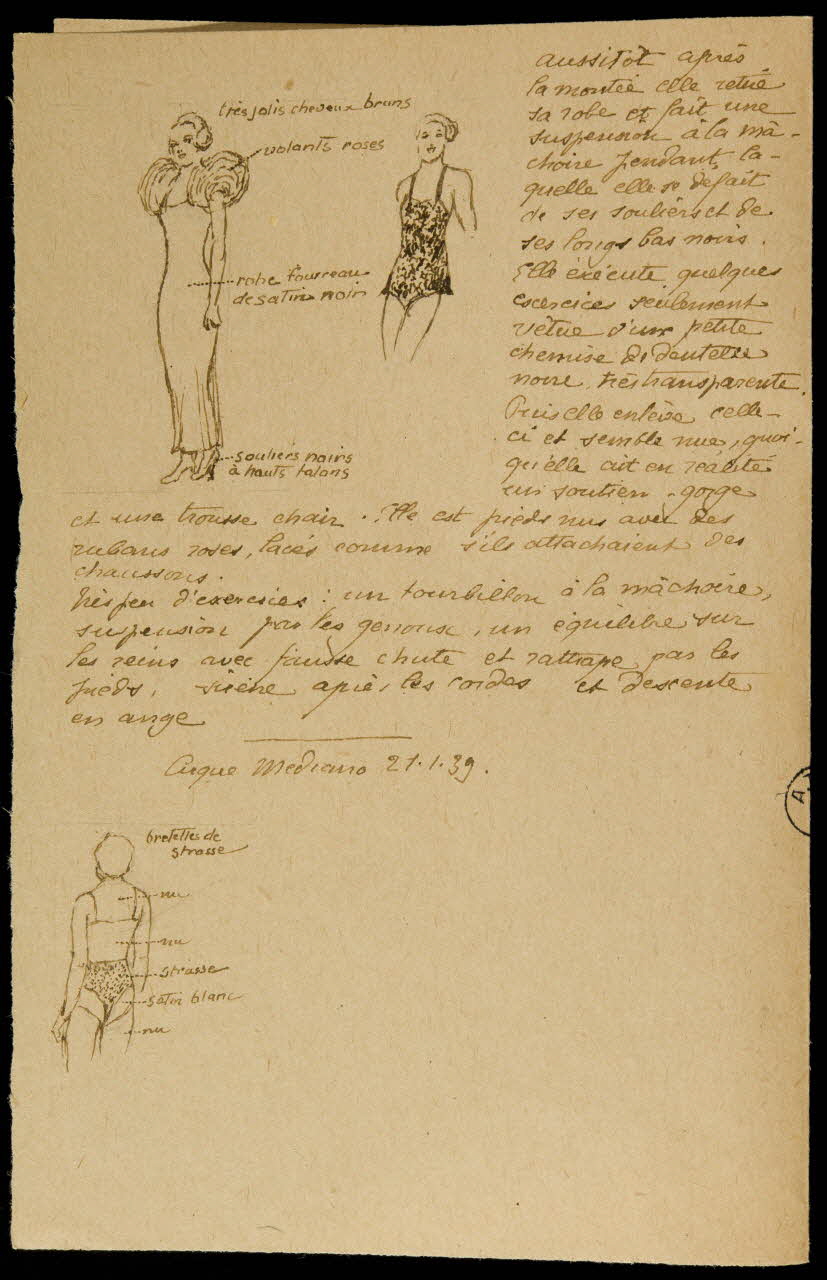 très jolis cheveux bruns
volants roses
robe fourreau
de satin noir
souliers noirs
à hauts talons
aussitôt après
la montée elle retire
sa robe et fait une
suspension à la mâ-
choire pendant la-
quelle elle se défait
de ses souliers et de
ses longs bas noirs.
Elle exécute quelques
exercices seulement
vêtue d'une petite
chemise de dentelle
noire très transparente.
Puis elle enlève celle-
ci et semble nue, quoi-
qu'elle ait en réalité
un soutien-gorge
et une trousse chair. Elle est pieds nus avec des
rubans roses, lacés comme s'ils attachaient des
chaussons.
Très peu d'exercices : un tourbillon à la mâchoire,
suspension par les genoux, un équilibre sur
les reins avec fausse chute et rattrape par les
pieds, sirène après les cordes et descente
en ange
Cirque Medrano 21.1.39.
bretelles de
strasse
nu
nu
strasse
satin blanc
nu
A